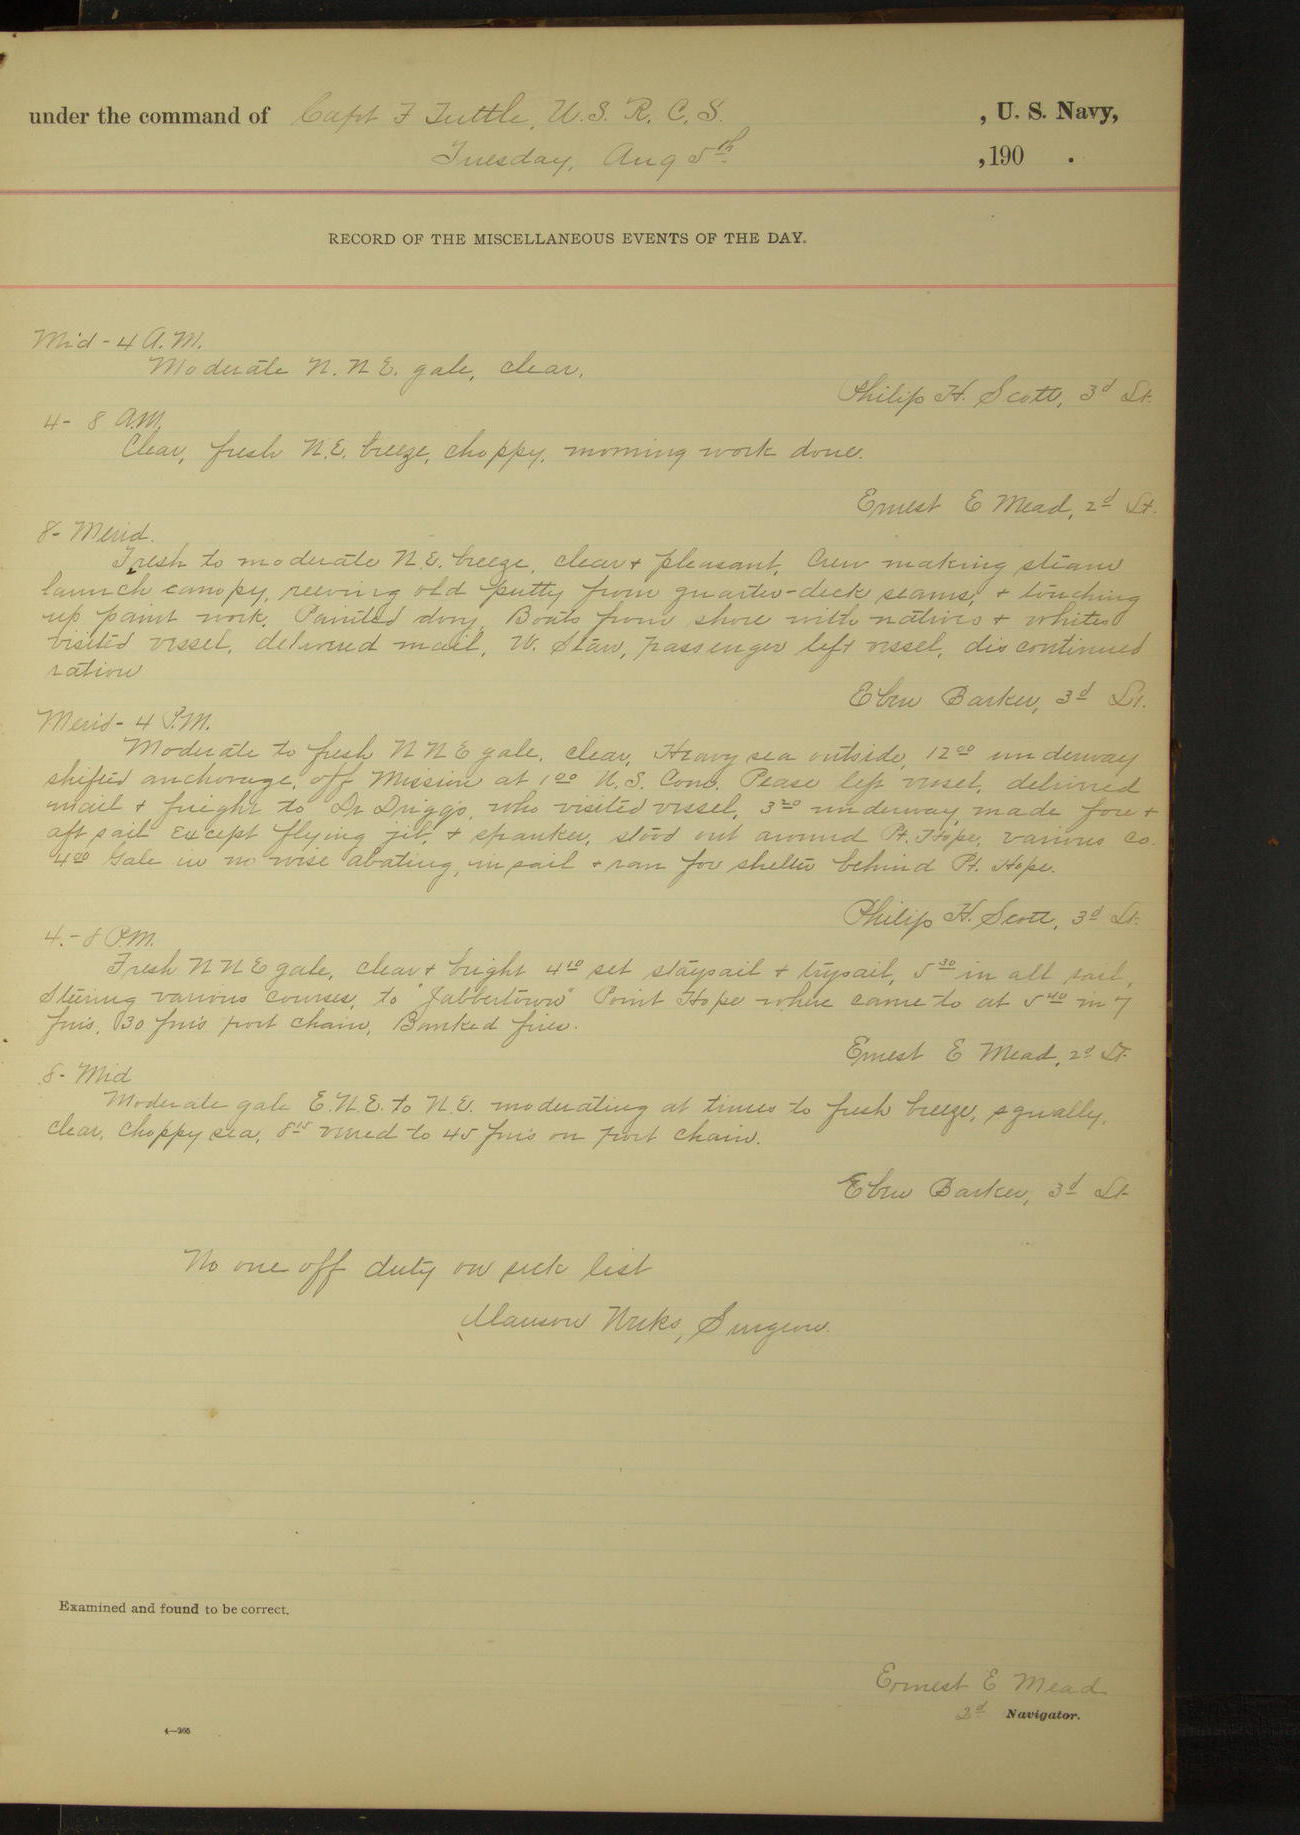 under the command of Capt F Tuttle, U.S. R. C. S. , U. S. Navy,
Tuesday, Aug 5th ,190 .
RECORD OF THE MISCELLANEOUS EVENTS OF THE DAY.
Mid - 4 A.M.
Moderate N. N E. gale, clear.
Philip H. Scott, 3d Lt.
4 - 8 A.M.
Clear, fresh N.E. breeze, choppy, morning work done.
Ernest E Mead, 2d Lt.
8 - Merid.
Fresh to moderate N.E. breeze, clear + pleasant, Crew making steam
launch canopy, reeving old putty from quarter-deck seams, + touching
up paint work. Painted dory, Boats from shore with natives + whites
visited vessel, delivered mail, W. Starr, passenger left vessel, discontinued
ration
Eben Barker, 3d Lt.
Merid - 4 P.M.
Moderate to fresh N N E gale, clear, Heavy sea outside, 12 00 underway
shifted anchorage, off Mission at 1 00 U.S. Com. Pease left vessel, delivered
mail + freight to Dr Driggs, who visited vessel, 3 20 underway, made fore +
aft sail except flying jib, + spanker, stood out around Pt. Hope, various co.
4 00 Gale in no wise abating, in sail + ran for shelter behind Pt. Hope.
Philip H. Scott, 3d Lt.
4. - 8 P.M.
Fresh N N E gale, clear + bright 4 10 set staysail + trysail, 5 30 in all sail,
Steering various courses, to "Jabbertown" Point Hope where came to at 5 40 in 7
fms, 30 fms port chain, Banked fires.
Ernest E Mead, 2d Lt.
8 - Mid
Moderate gale E.N.E. to N.E. moderating at times to fresh breeze, squally,
clear, choppy sea, 8 15 veered to 45 fms on port chain.
Eben Barker, 3d Lt
No one off duty on sick list
Surgeon.
Examined and found to be correct.
Ernest E Mead
2d Navigator.
4—265